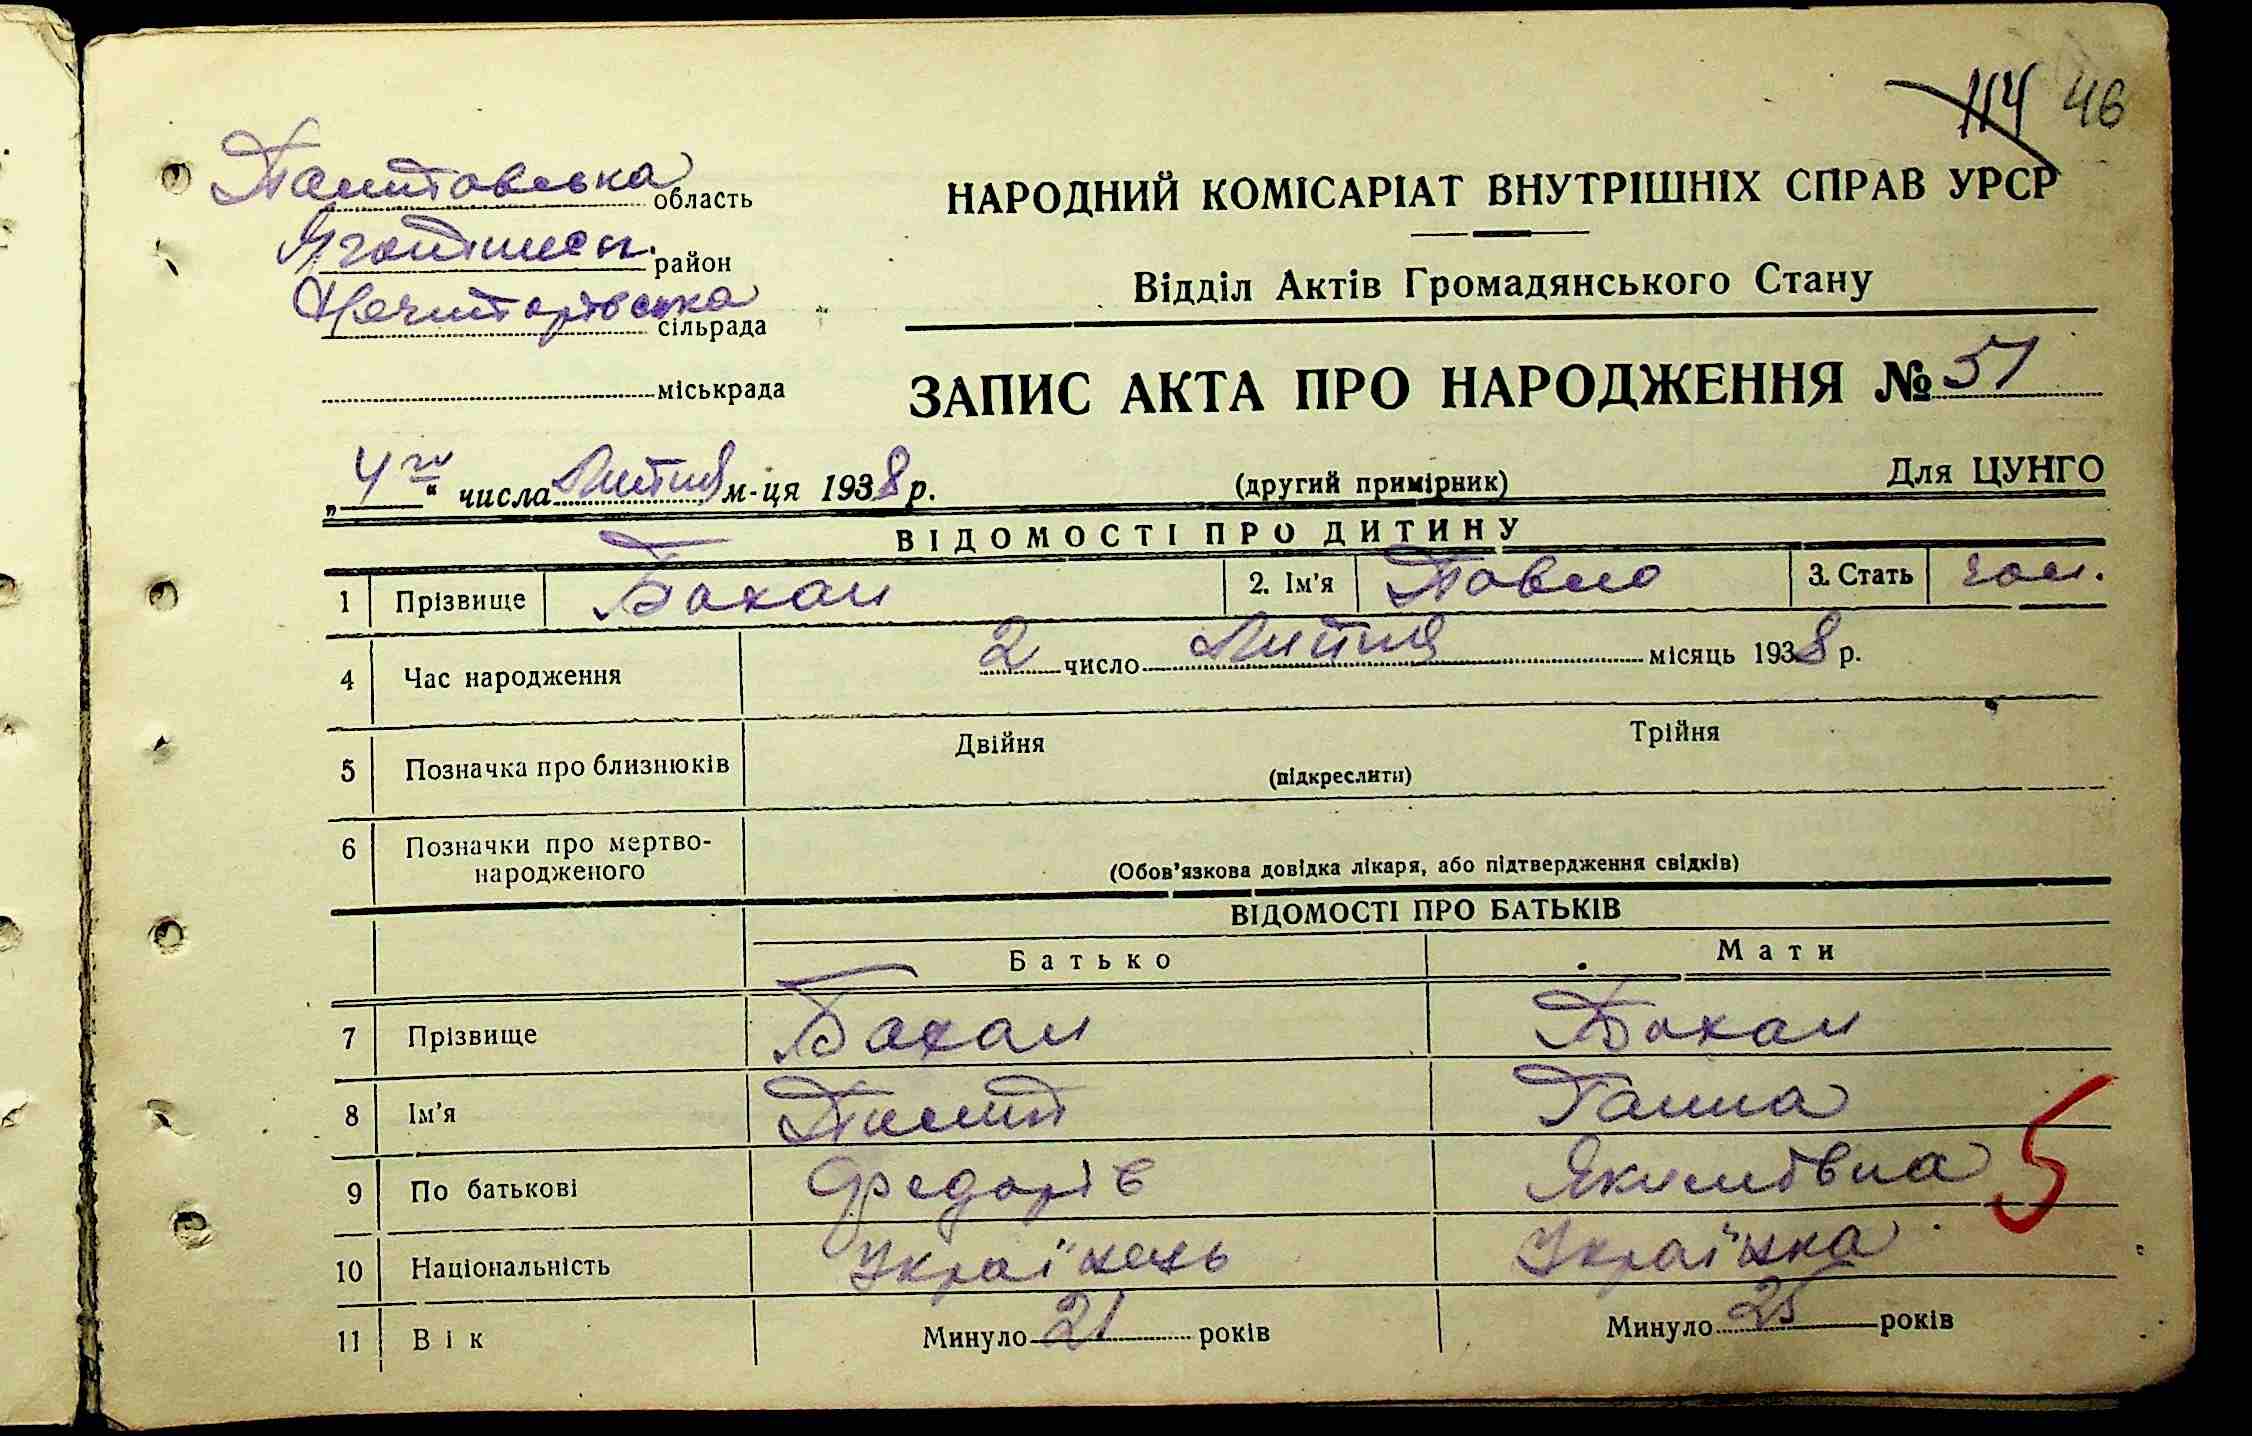 114 46
Полтовська область
район
сільрада
міськрада
НАРОДНИЙ КОМІСАРІАТ ВНУТРІШНІХ СПРАВ УРСР
Відділ Актів Громадянського Стану
ЗАПИС АКТА ПРО НАРОДЖЕННЯ № 51
„4го“ числа Липня м-ця 1938 р. (другий примірник) Для ЦУНГО
ВІДОМОСТІ ПРО ДИТИНУ
1 Прізвище Бакал 2. Ім'я Павло 3. Стать чол.
4 Час народження 2 число Липня місяць 1938 р.
5 Позначка про близнюків Двійня Трійня
(підкреслити)
6 Позначки про мертво-
народженого (Обов'язкова довідка лікаря, або підтвердження свідків)
ВІДОМОСТІ ПРО БАТЬКІВ
Батько Мати
7 Прізвище Бакал Бакал
8 Ім'я Ганна
9 По батькові Федорів Якимівна 5
10 Національність Українець Українка
11 Вік Минуло 21 років Минуло 25 років